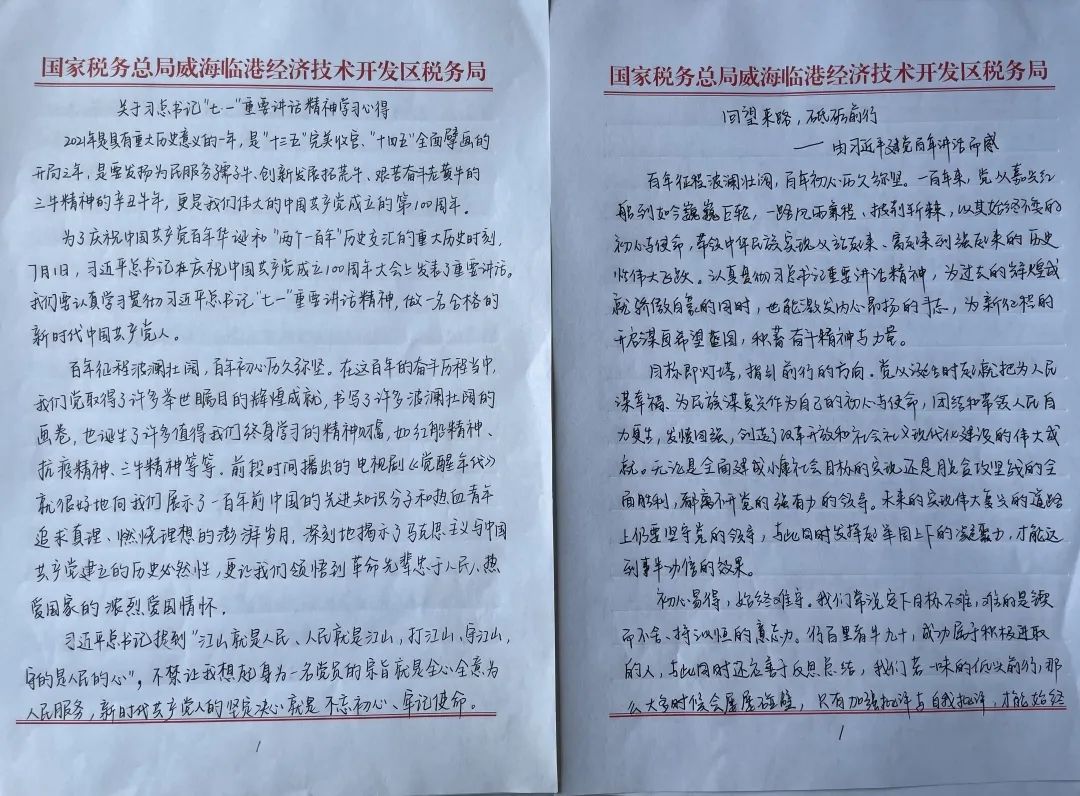 国家税务总局威海临港经济技术开发区税务局
关于习总书记“七一”重要讲话精神学习心得
2021年是具有重大历史意义的一年，是“十三五”完美收官、“十四五”全面擘画的
开局之年，是要发扬为民服务孺子牛、创新发展拓荒牛、艰苦奋斗老黄牛的
三牛精神的辛丑牛年，更是我们伟大的中国共产党成立的第100周年。
为了庆祝中国共产党百年华诞和“两个一百年”历史交汇的重大历史时刻，
7月1日，习近平总书记在庆祝中国共产党成立100周年大会上发表了重要讲话。
我们要认真学习贯彻习近平总书记“七一”重要讲话精神，做一名合格的
新时代中国共产党人。
百年征程波澜壮阔，百年初心历久弥坚。在这百年的奋斗历程当中，
我们党取得了许多举世瞩目的辉煌成就，书写了许多波澜壮阔的
画卷，也诞生了许多值得我们终身学习的精神财富，如红船精神、
抗疫精神、三牛精神等等。前段时间播出的电视剧《觉醒年代》
就很好地向我们展示了一百年前中国的先进知识分子和热血青年
追求真理、燃烧理想的澎湃岁月，深刻地揭示了马克思主义与中国
共产党建立的历史必然性，更让我们领悟到革命先辈忠于人民、热
爱国家的浓烈爱国情怀。
习近平总书记提到“江山就是人民、人民就是江山，打江山、守江山，
守的是人民的心”，不禁让我想起身为一名党员的宗旨就是全心全意为
人民服务，新时代共产党人的坚定决心就是不忘初心、牢记使命。
1
国家税务总局威海临港经济技术开发区税务局
回望来路，砥砺前行
——由习近平建党百年讲话而感
百年征程波澜壮阔，百年初心历久弥坚。一百年来，党从嘉兴红
船到如今巍巍巨轮，一路风雨兼程、披荆斩棘，以其始终不变的
初心与使命，带领中华民族实现从站起来、富起来到强起来的历史
性伟大飞跃。认真贯彻习总书记重要讲话精神，为过去的辉煌成
就骄傲自豪的同时，也能激发内心昂扬的斗志，为新征程的
开启谋画希望蓝图，积蓄奋斗精神与力量。
目标即灯塔，指引前行的方向。党从诞生时刻就把为人民
谋幸福、为民族谋复兴作为自己的初心与使命，团结和带领人民自
力更生，发愤图强，创造了改革开放和社会主义现代化建设的伟大成
就。无论是全面建成小康社会目标的实现还是脱贫攻坚战的全
面胜利，都离不开党的强有力的领导。未来的实现伟大复兴的道路
上仍要坚守党的领导，与此同时发挥起举国上下的凝聚力，才能达
到事半功倍的效果。
初心易得，始终难守。我们常说定下目标不难，难的是锲
而不舍、持之以恒的意志力。行百里者半九十，成功属于积极进取
的人，与此同时还应善于反思总结，我们若一味的低头前行，那
么大多时候会屡屡碰壁，只有加强批评与自我批评，才能始终
1